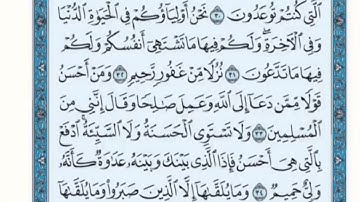 ٱلَّتِي كُنتُمْ تُوعَدُونَ ٣٠ نَحْنُ أَوْلِيَآؤُكُمْ فِي ٱلْحَيَوٰةِ ٱلدُّنْيَا
وَفِي ٱلْـَٔاخِرَةِ ۖ وَلَكُمْ فِيهَا مَا تَشْتَهِيٓ أَنفُسُكُمْ وَلَكُمْ
فِيهَا مَا تَدَّعُونَ ٣١ نُزُلًا مِّنْ غَفُورٍ رَّحِيمٍ ٣٢ وَمَنْ أَحْسَنُ
قَوْلًا مِّمَّن دَعَآ إِلَى ٱللَّهِ وَعَمِلَ صَٰلِحًا وَقَالَ إِنَّنِي مِنَ
ٱلْمُسْلِمِينَ ٣٣ وَلَا تَسْتَوِي ٱلْحَسَنَةُ وَلَا ٱلسَّيِّئَةُ ۚ ٱدْفَعْ
بِٱلَّتِي هِيَ أَحْسَنُ فَإِذَا ٱلَّذِي بَيْنَكَ وَبَيْنَهُۥ عَدَٰوَةٌ كَأَنَّهُۥ
وَلِيٌّ حَمِيمٌ ٣٤ وَمَا يُلَقَّىٰهَآ إِلَّا ٱلَّذِينَ صَبَرُوا۟ وَمَا يُلَقَّىٰهَآ